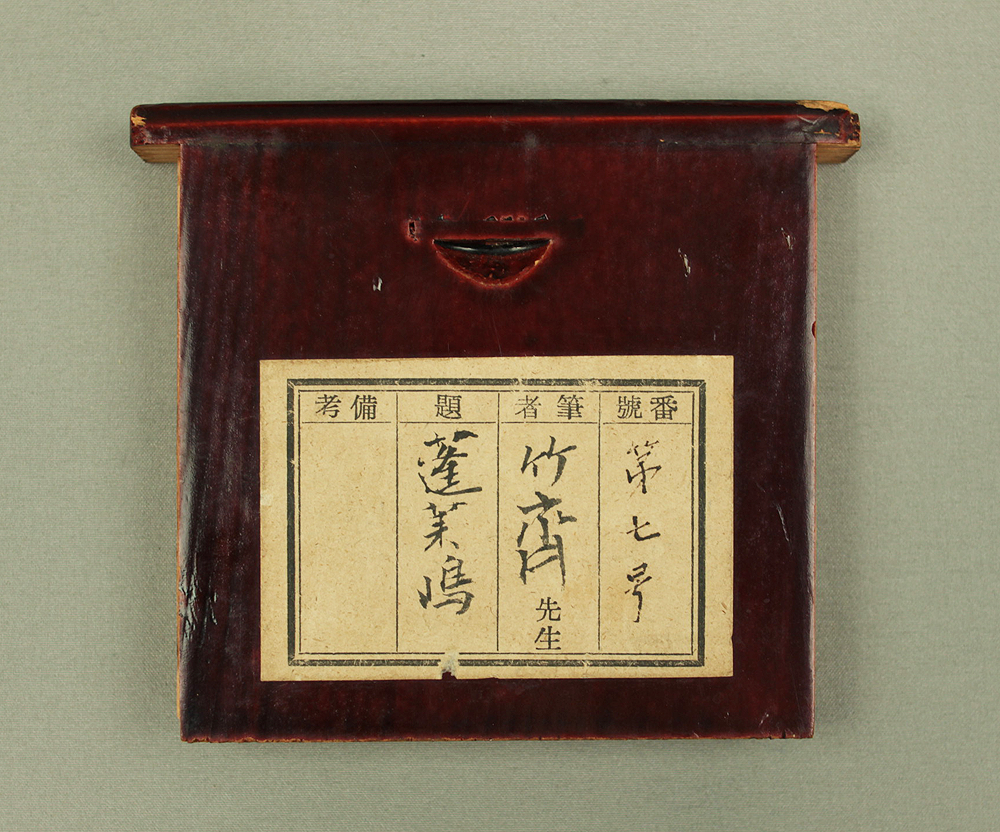 番號
第七号
筆者
竹齊先生
題
蓬莱嶋
備考